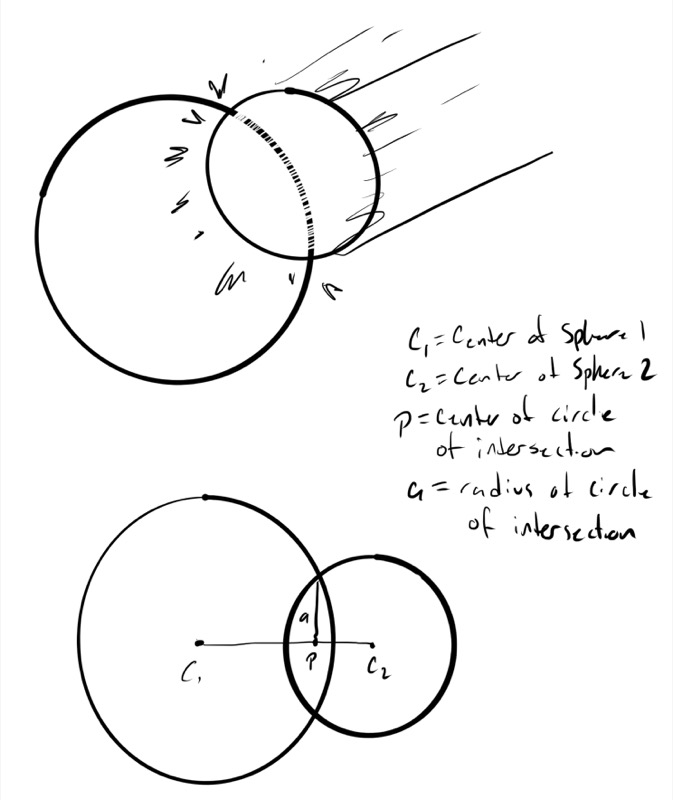 C₁ = Center of Sphere 1
C₂ = Center of Sphere 2
P = Center of circle
of intersection
a = radius of circle
of intersection
a
C₁ P C₂